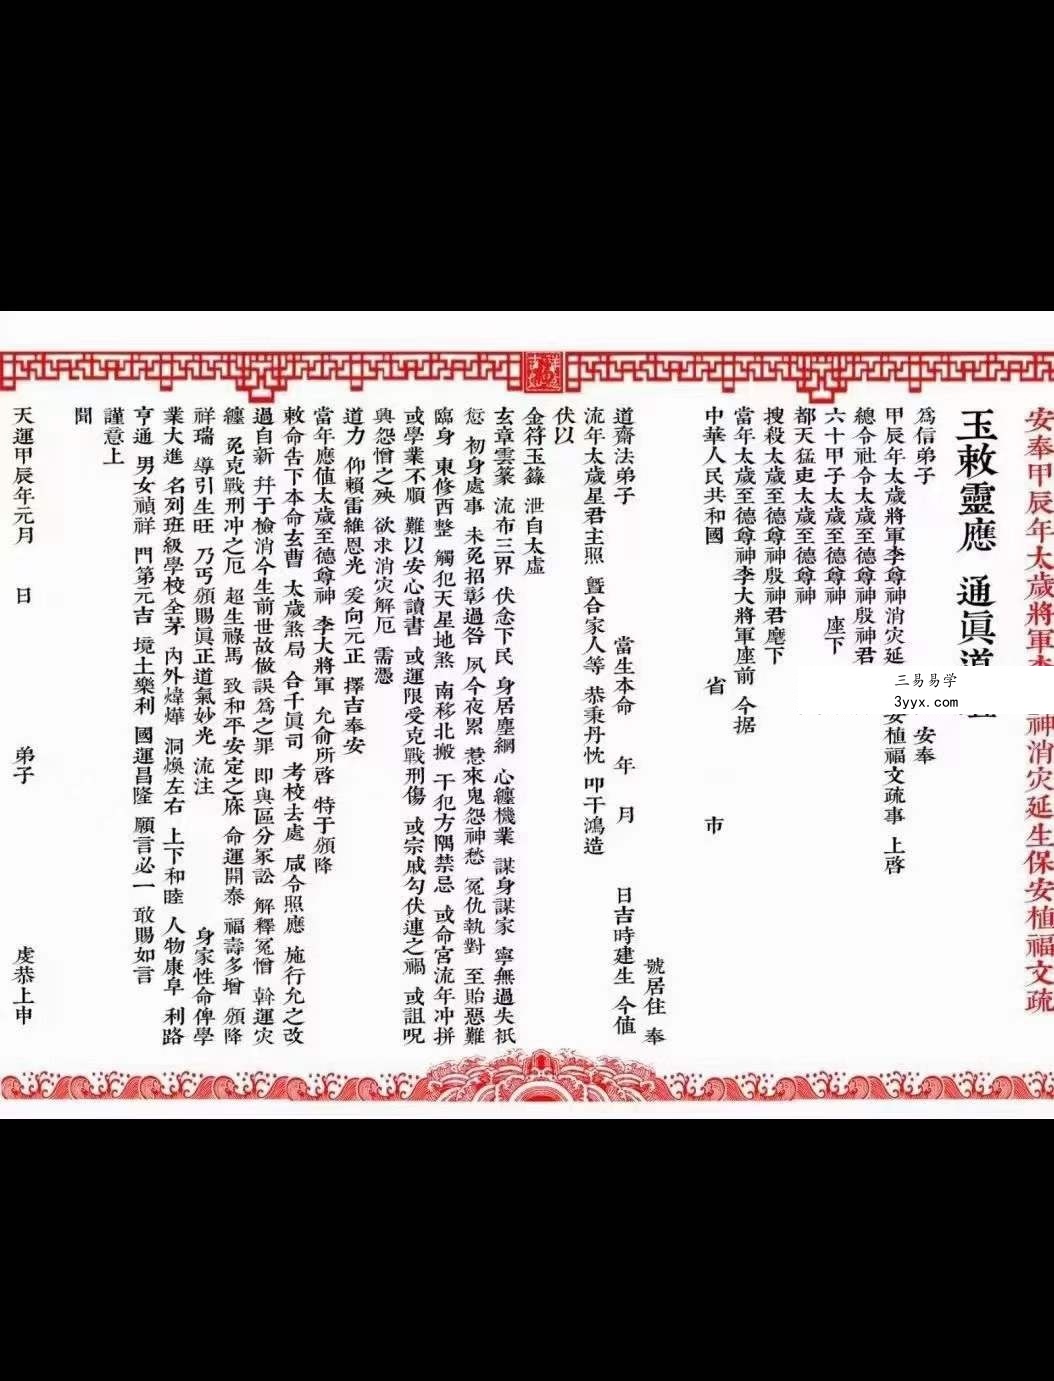 安奉甲辰年太歲將軍李 神消灾延生保安植福文疏
玉敕靈應 通眞道
爲信弟子 安奉
甲辰年太歲將軍李尊神消灾延 安植福文疏事 上啓
總令社令太歲至德尊神殷神君
六十甲子太歲至德尊神 座下
都天猛吏太歲至德尊神
搜殺太歲至德尊神殷神君麾下
當年太歲至德尊神李大將軍座前 今据
中華人民共和國 省 市
號居住 奉
道齋法弟子 當生本命 年 月 日吉時建生 今值
流年太歲星君主照 曁合家人等 恭秉丹忱 叩干鴻造
伏以
金符玉籙 泄自太虛
玄章雲篆 流布三界 伏念下民 身居塵網 心纏機業 謀身謀家 寧無過失祇
愆 初身處事 未免招彰過咎 夙今夜累 惹來鬼怨神愁 冤仇執對 至貽惡難
臨身 東修西整 觸犯天星地煞 南移北搬 干犯方隅禁忌 或命宮流年冲拼
或學業不順 難以安心讀書 或運限受克戰刑傷 或宗戚勾伏連之禍 或詛呪
興怨憎之殃 欲求消灾解厄 需憑
道力 仰賴雷維恩光 爰向元正 擇吉奉安
當年應值太歲至德尊神 李大將軍 允俞所啓 特于頒降
敕命告下本命玄曹 太歲煞局 合千眞司 考校去處 咸令照應 施行允之改
過自新 幷于檢消今生前世故做誤爲之罪 即與區分冢訟 解釋冤憎 斡運灾
纏 免克戰刑冲之厄 超生祿馬 致和平安定之庥 命運開泰 福壽多增 頒降
祥瑞 導引生旺 乃丐頒賜眞正道氣妙光 流注 身家性命俾學
業大進 名列班級學校全茅 內外煒燁 洞煥左右 上下和睦 人物康阜 利路
亨通 男女禎祥 門第元吉 境土樂利 國運昌隆 願言必一 敢賜如言
謹意上
聞
天運甲辰年元月 日 弟子 虔恭上申
三易易学
3yyx.com